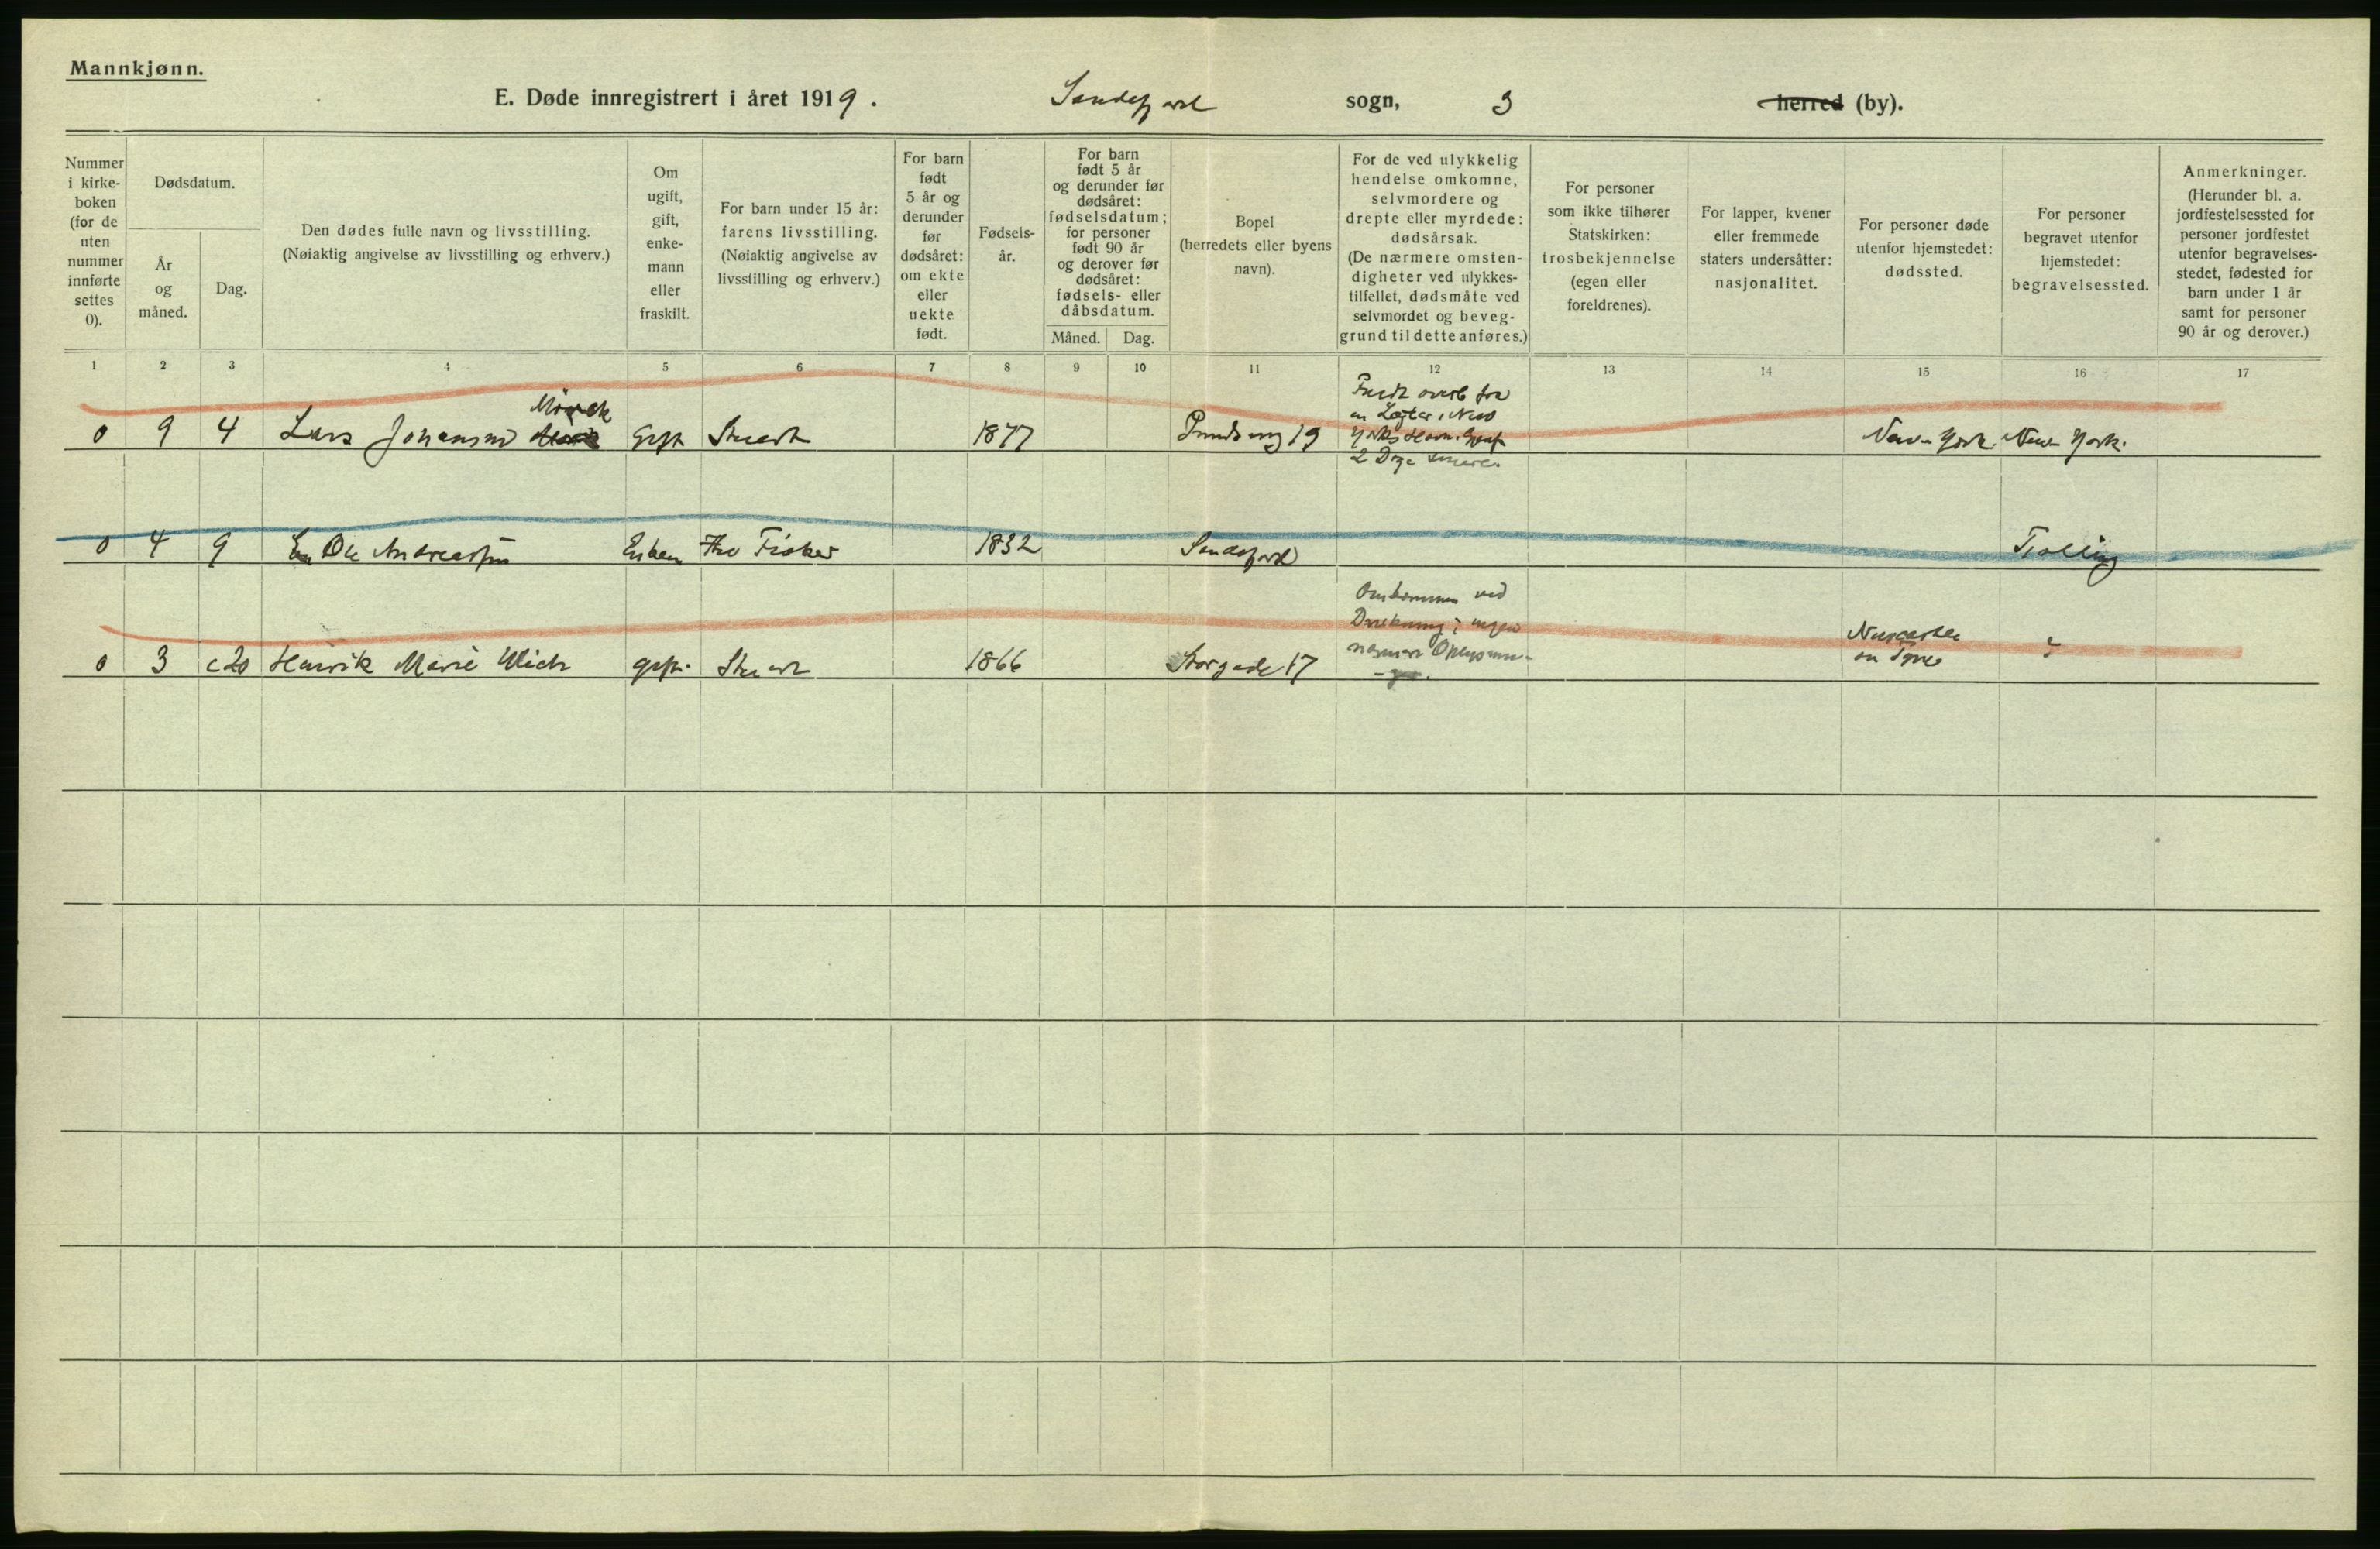 Mannkjønn.
E. Døde innregistrert i året 1919. Sandefjord sogn, 3 herred (by).
Nummer
i kirke-
boken
(for de
uten
nummer
innførte
settes
0).
Dødsdatum.
År
og
måned.
Dag.
Den dødes fulle navn og livsstilling.
(Nøiaktig angivelse av livsstilling og erhverv.)
Om
ugift,
gift,
enke-
mann
eller
fraskilt.
For barn under 15 år:
farens livsstilling.
(Nøiaktig angivelse av
livsstilling og erhverv.)
For barn
født
5 år og
derunder
før
dødsåret:
om ekte
eller
uekte
født.
Fødsels-
år.
For barn
født 5 år
og derunder før
dødsåret:
fødselsdatum;
for personer
født 90 år
og derover før
dødsåret:
fødsels- eller
dåbsdatum.
Måned. Dag.
Bopel
(herredets eller byens
navn).
For de ved ulykkelig
hendelse omkomne,
selvmordere og
drepte eller myrdede:
dødsårsak.
(De nærmere omsten-
digheter ved ulykkes-
tilfellet, dødsmåte ved
selvmordet og beveg-
grund til dette anføres.)
For personer
som ikke tilhører
Statskirken:
trosbekjennelse
(egen eller
foreldrenes).
For lapper, kvener
eller fremmede
staters undersåtter:
nasjonalitet.
For personer døde
utenfor hjemstedet:
dødssted.
For personer
begravet utenfor
hjemstedet:
begravelsessted.
Anmerkninger.
(Herunder bl. a.
jordfestelsessted for
personer jordfestet
utenfor begravelses-
stedet, fødested for
barn under 1 år
samt for personer
90 år og derover.)
1 2 3 4 5 6 7 8 9 10 11 12 13 14 15 16 17
0 9 4 Lars Johansen Gift Stuert 1877 19
en Legter i New
Yorks Havn.
2 Dage senere.
New York. New York.
0 4 9 Ole Andreassen Enkem Fisker 1832 Sandefjord Tjølling
0 3 c20 Henrik Marie Wich gift. Stuert 1866 Storgade 17
Omkommen ved
Drukning; ingen
nærmere Oplysnin-
ger.
Newcastle
on Tyne
?